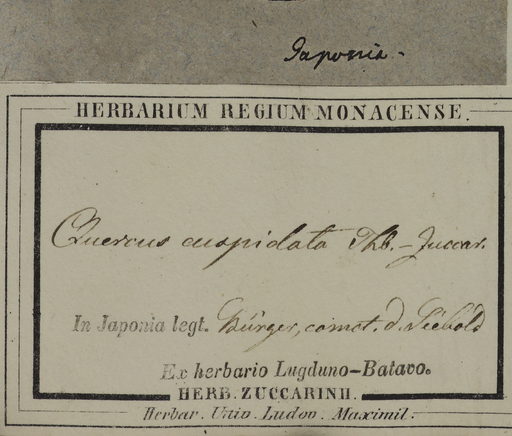 Japonia.
HERBARIUM REGIUM MONACENSE.
Quercus cuspidata Thb. - Zuccar.
In Japonia legt. Bürger, comt. d. Siebold
Ex herbario Lugduno-Batavo.
HERB. ZUCCARINII.
Herbar. Univ. Ludov. Maximil.